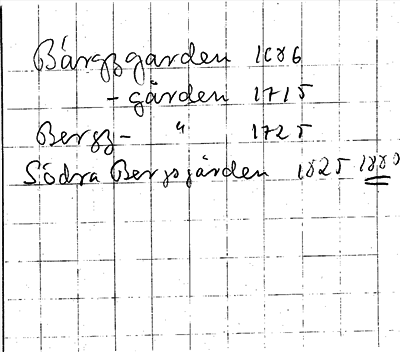 Bärgzgarden 1686
- gården 1715
Bergz - " 1725
Södra Bergsgården 1825 1880